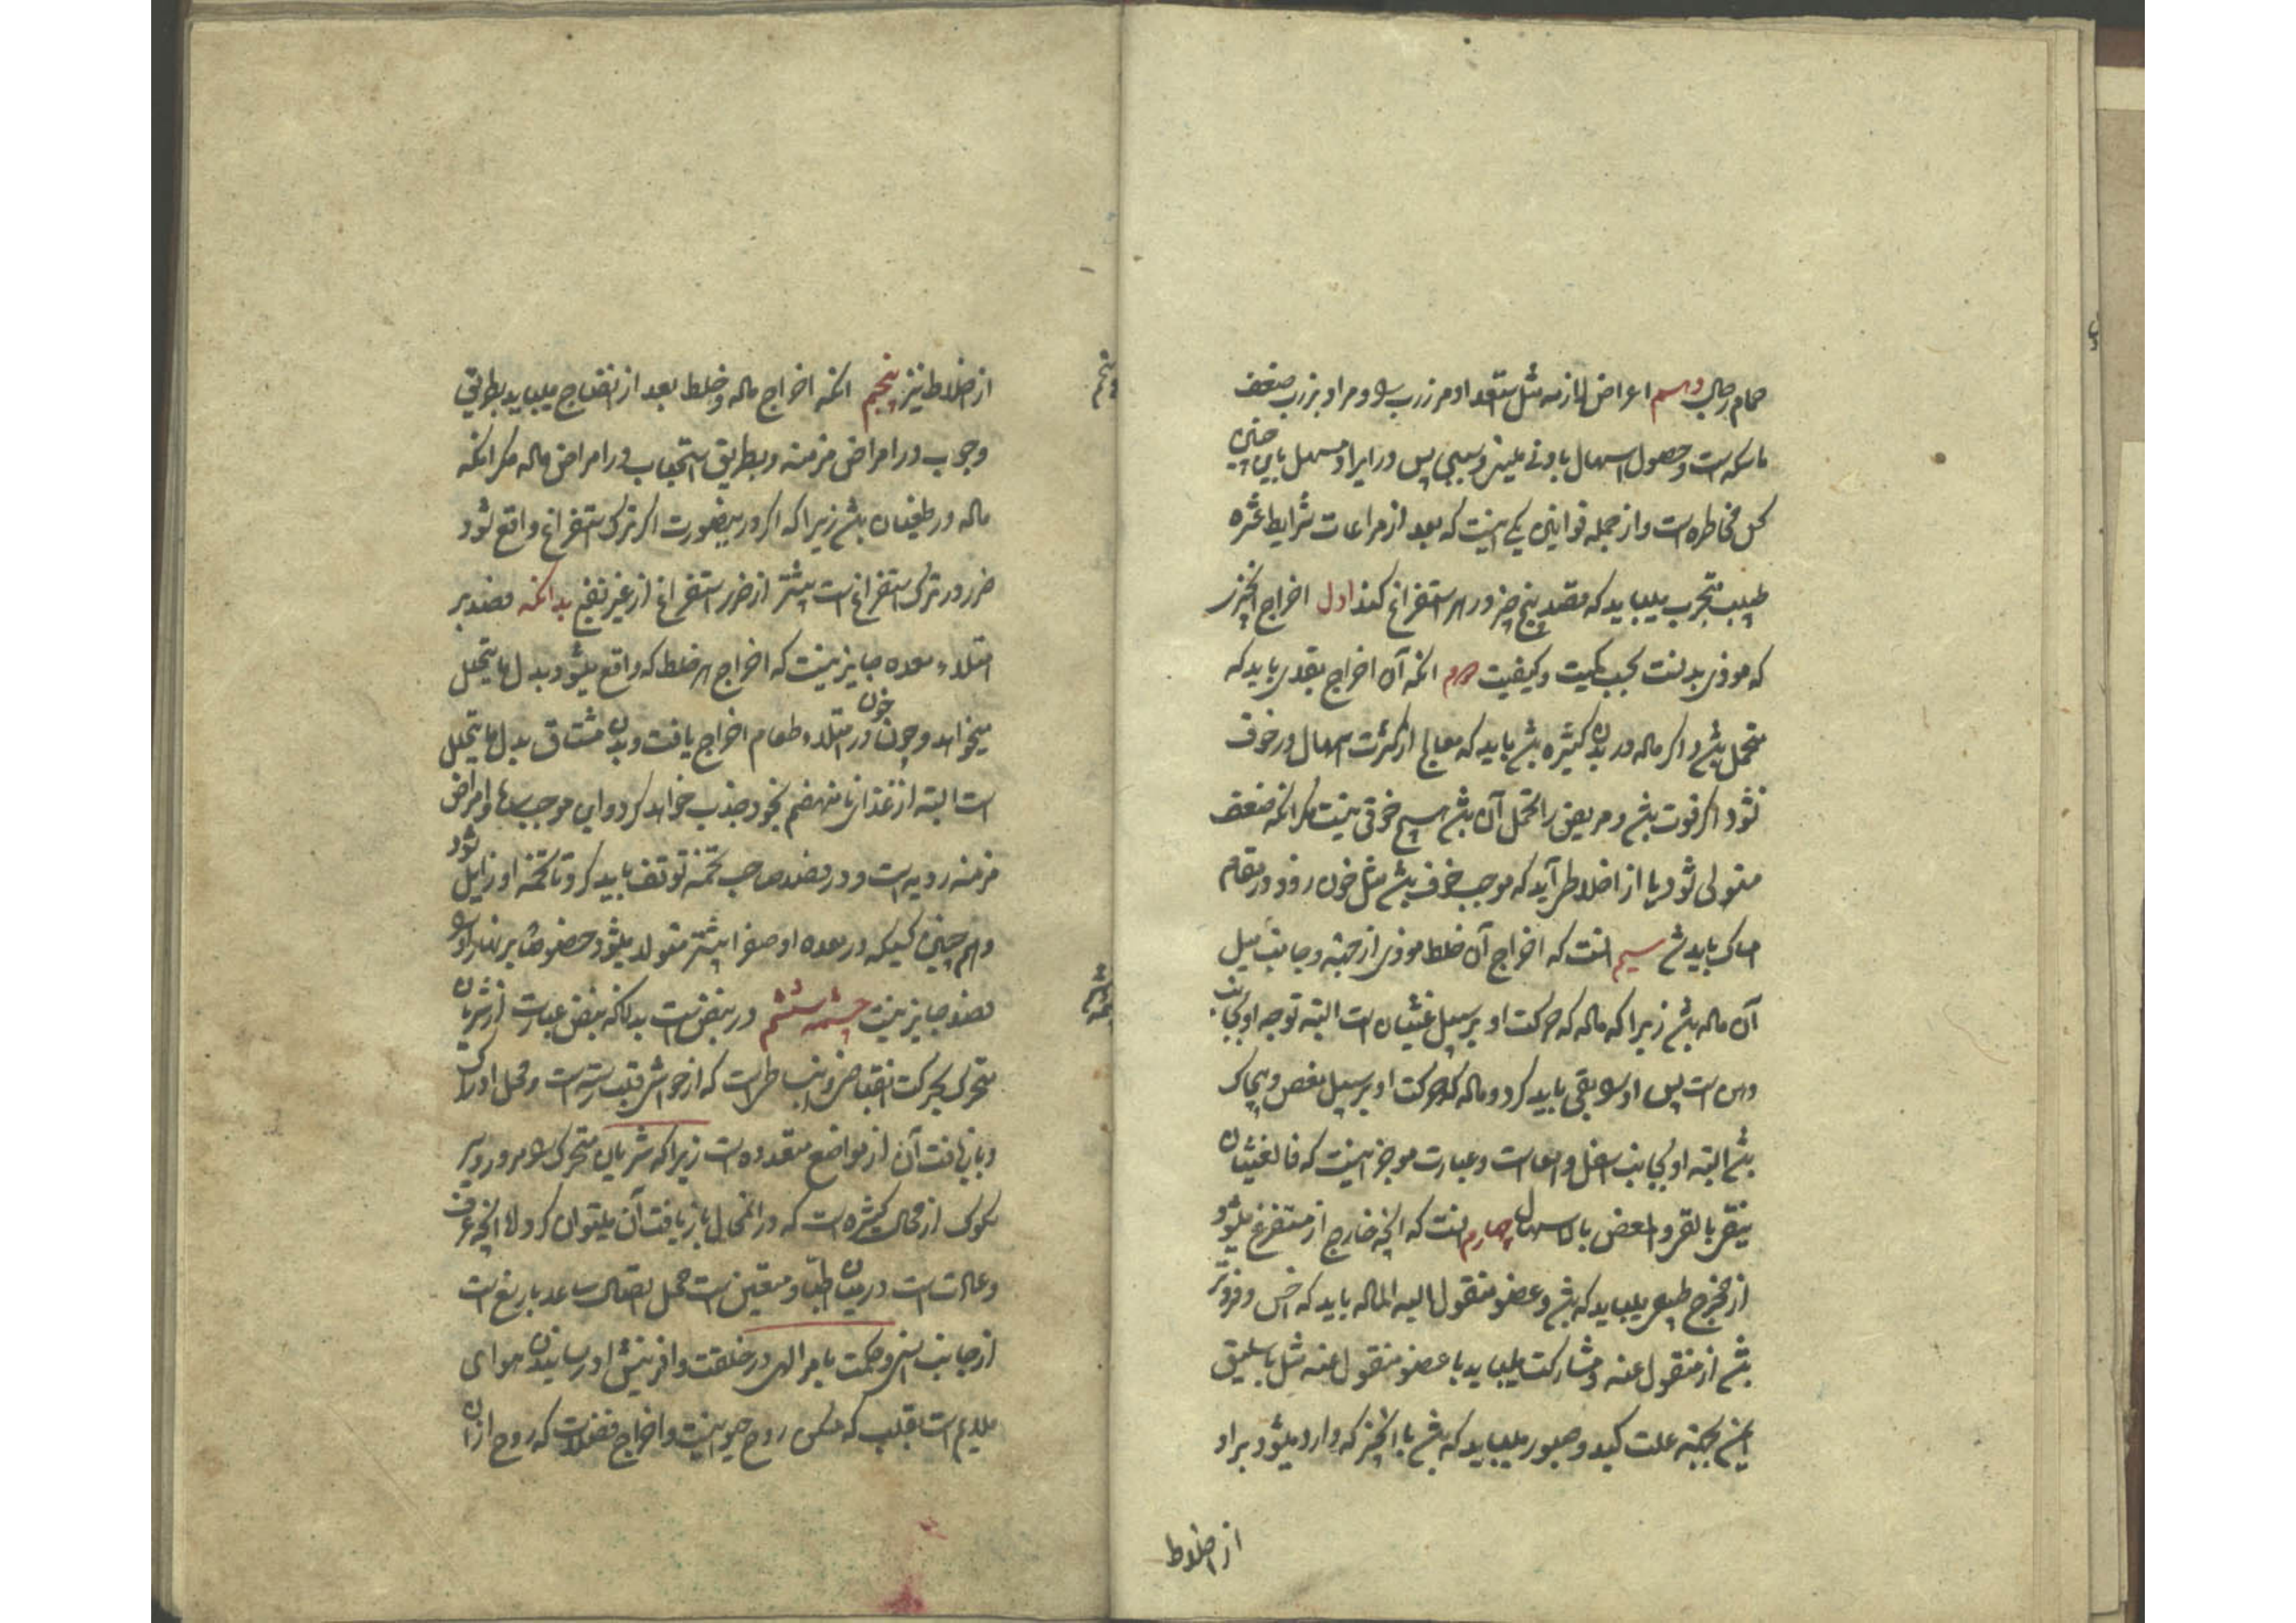 حمام رجال دهم اعراض لازمه مثل استعداد مر زرب را و مراد بزرب ضعف
ماسکه است و حصول اسهال بادنی ملین و سببی پس در ایراد مسهل باین چنین
کس مخاطره است و از جمله قوانین یکی اینست که بعد از مراعات شرایط عشره
طبیب مجرب میباید که قصد پنج چیز در هر استفراغ کند اول اخراج آنچیز
که موذی بدنست بحسب کمیت و کیفیت دوم آنکه آن اخراج بقدری باید که
متحمل باشد و اگر ماده در بدن کثیره باشد باید که معالج از کثرت اسهال در خوف
نشود اگر قوت باشد و مریض را تحمل آن باشد هیچ خوفی نیست مگر آنکه ضعف
متولی شود و یا از اخلاط برآید که موجب خوف باشد مثل خون رود در مقام
امساک باید شد سیم آنست که اخراج آن خلط موذی از جهته و جانب میل
آن ماده باشد زیرا که ماده که حرکت او بر سبیل غثیان است البته توجه او بجانب
دهن است پس او را بقی باید کرد و ماده که حرکت او بر سبیل مغص و پیچاک
باشد البته او بجانب اسفل و امعاست و عبارت موجز اینست که فالغثیان
ینقی بالقی و المغص بالاسهال چهارم آنست که آنچه خارج از مستفرغ میشود
از مخرج طبیعی میباید که باشد و عضو منقول الیه الماده باید که اخس و فروتر
باشد از منقول عنه و مشارکت میباید با عضو منقول عنه مثل باسلیق
ایمن بجهته علت کبد و صبور میباید که باشد با آنچیز که وارد میشود بر او
از اخلاط
از اخلاط نیز پنجم آنکه اخراج ماده و خلط بعد از انضاج میباید بطریق
وجوب در امراض مزمنه و بطریق استحباب در امراض حاده مگر آنکه
ماده در طغیان باشد زیرا که اگر درینصورت اگر ترک استفراغ واقع شود
ضرر در ترک استفراغ است بیشتر از ضرر استفراغ از غیر نضج بدانکه فصد بر
امتلاء معده جایز نیست که اخراج هر خلط که واقع میشود بدل ما یتحلل
میخواهد و چون خون در امتلاء طعام اخراج یافت و بدن مشتاق بدل ما یتحلل
است البته از غذای نامنهضم بخود جذب خواهد کرد و این موجب سدها و امراض
مزمنه ردیه است و در فصد صاحب تخمه توقف باید کرد تا تخمه او زایل شود
و همچنین کسیکه در معده او صفرا بیشتر متولد میشود خصوصا بر نهار او را
فصد جایز نیست چشمه ششم در نبض است بدانکه نبض عبارت از شریان
متحرک بحرکت انقباضی و انبساطی است که از جوش قلب رسته است و محل ادراک
و بازیافت آن از مواضع متعدده است زیرا که شریان متحرک را مرور و سیر
سلوک از محال کثیره است که در آنمحال بازیافت آن میتوان کرد لا آنچه عرف
و عادت است در میان اطبا و متعین است محل اتصال ساعد با رسغ است
از جانب انسی و حکمت بامر الهی در خلقت و آفرینش او رسانیدن هوای
ملایم است بقلب که مسکن روح حیوانیست و اخراج فضلات که روح از آن
پنجم
چشمه